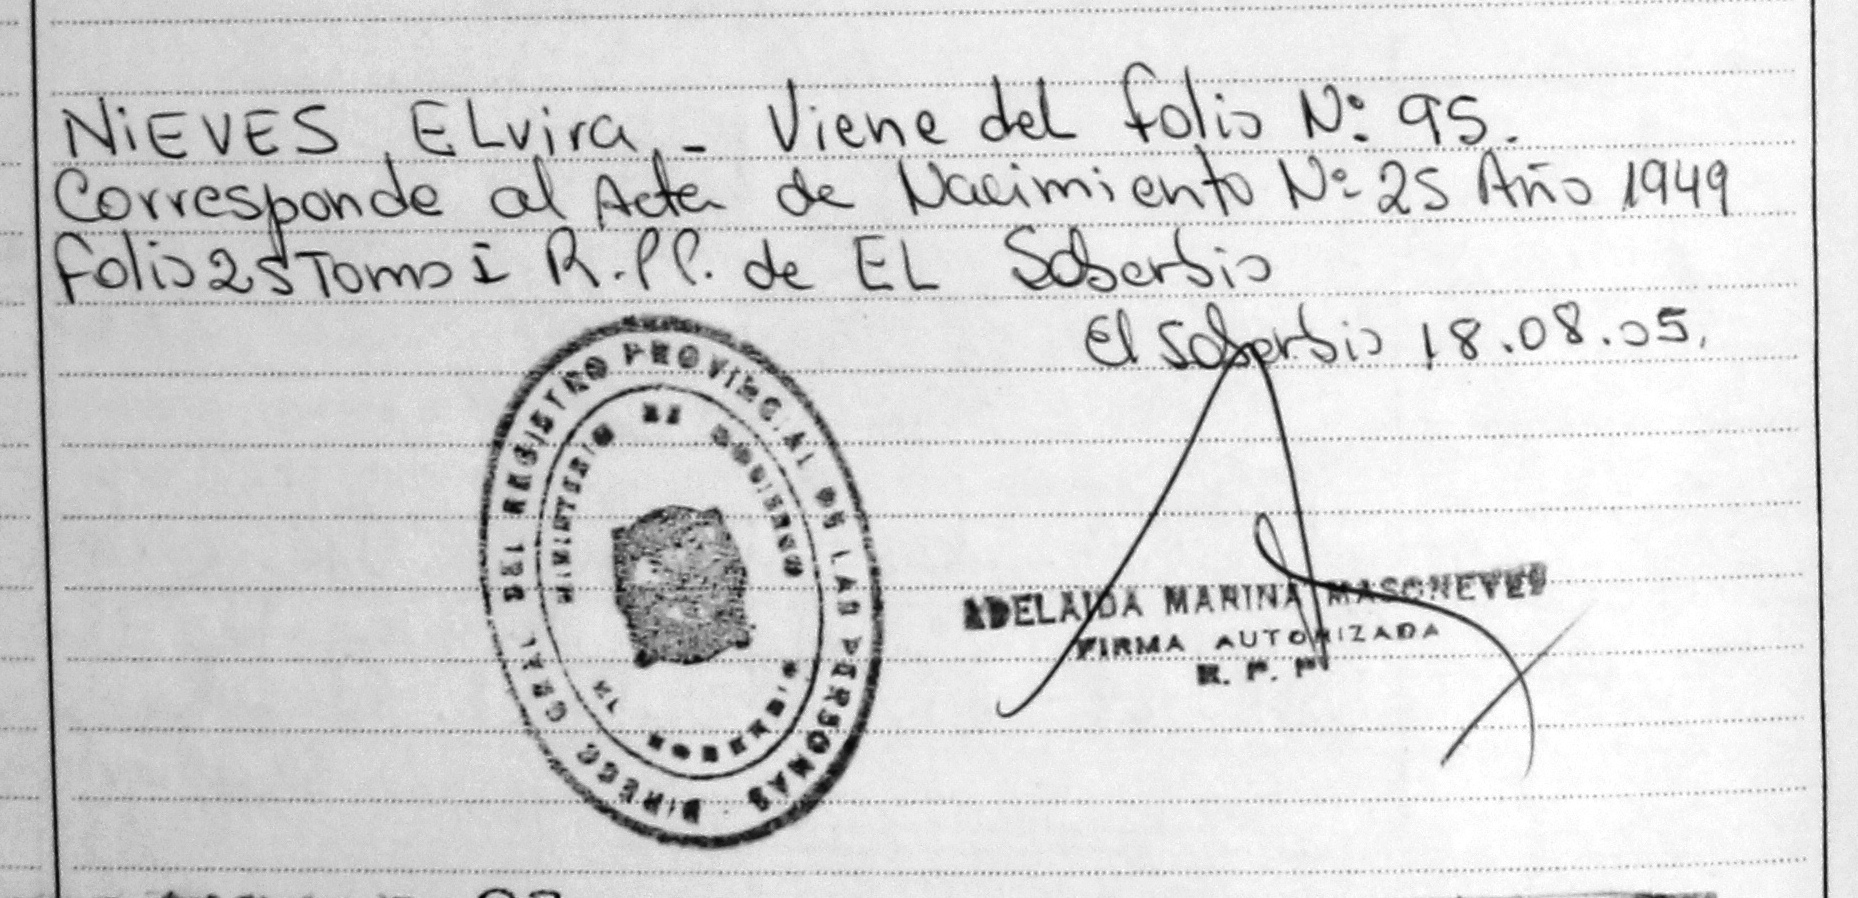 NiEVES, ELvira, - Viene del folio Nº: 95.
Corresponde al Acta de Nacimiento Nº: 25 Año 1949
folio 25 Tomo I R.PP. de EL Soberbio
El Soberbio 18.08.05.
DIRECC GRAL DEL REGISTRO PROVINCIAL DE LAS PERSONAS
MINISTERIO DE GOBIERNO
MISIONES
ADELAIDA MARINA
FIRMA AUTORIZADA
R. P. P